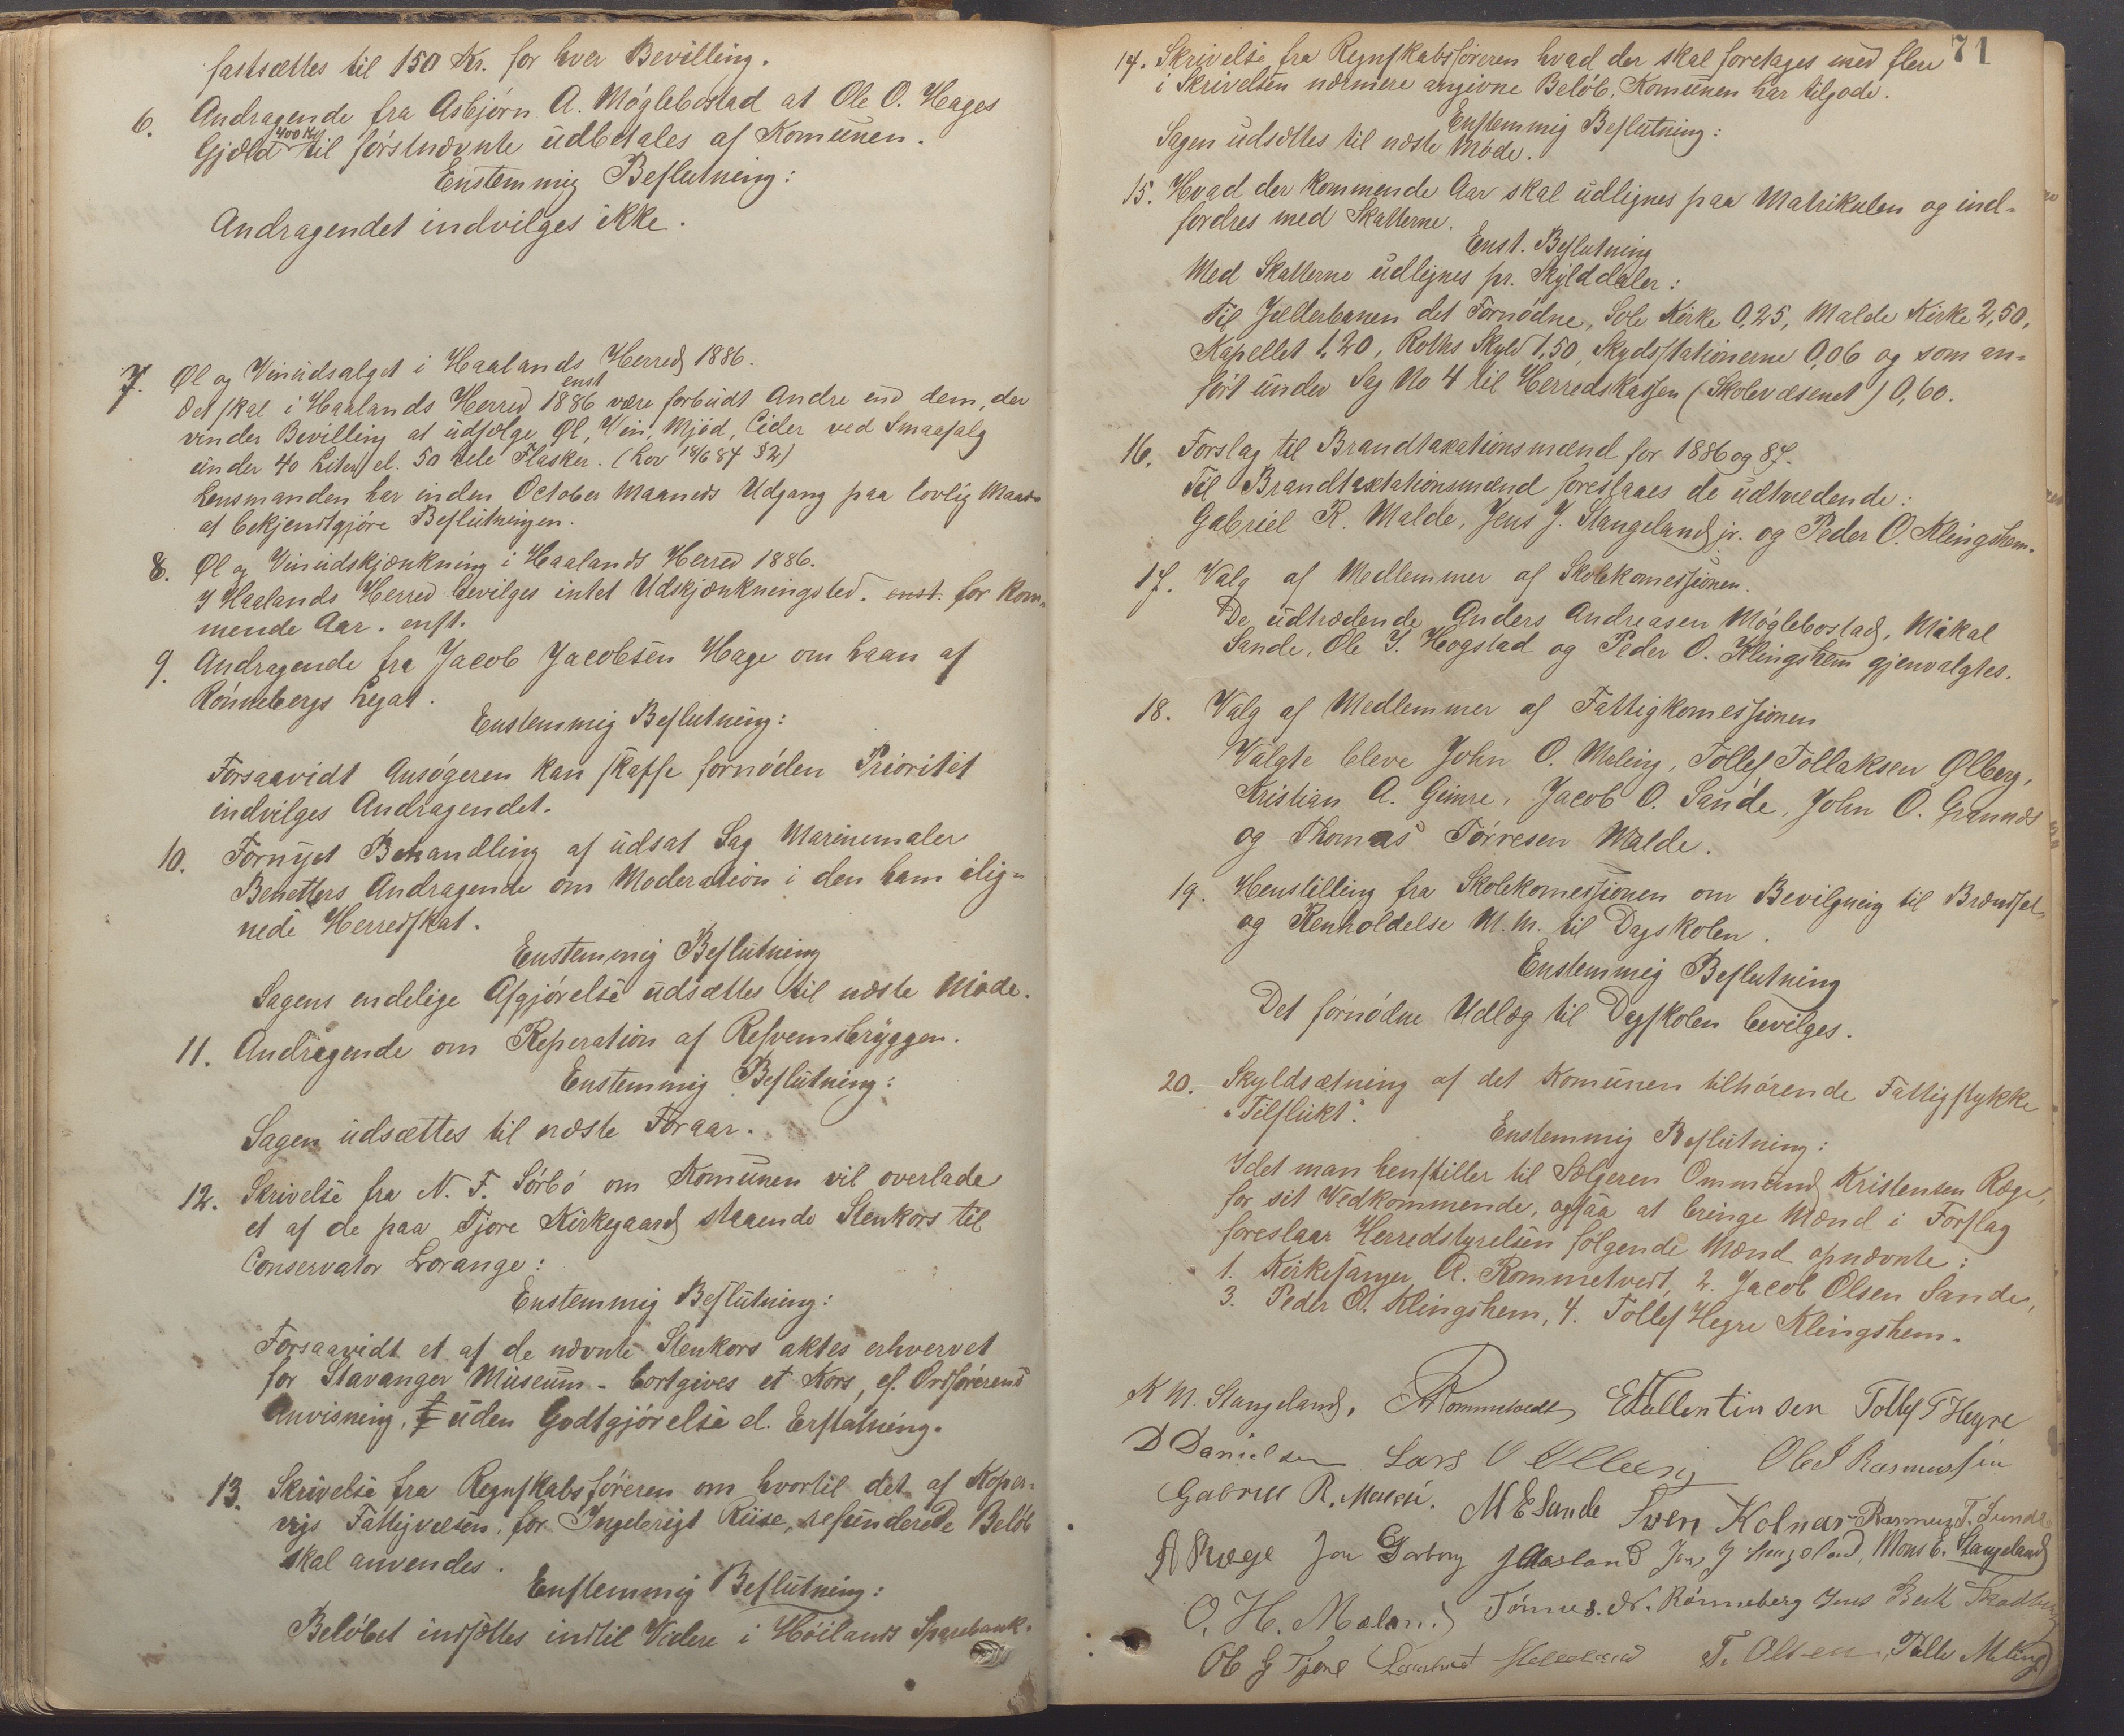 fastsættes til 150 Kr. for hver Bevilling.
6. Andragende fra Asbjørn A. Møglebostad at Ole O. Hages
400 Kr
Gjæld til førstnævnte udbetales af Komunen.
Enstemmig Beslutning:
Andragendet indvilges ikke.
7. Øl og Vinudsalget i Haalands Herred 1886.
enst
Det skal i Haalands Herred 1886 være forbudt Andre end dem, der
vinder Bevilling at udsælge Øl, Vin, Mjød, Cider ved Smaasalg
under 40 Liter el. 50 hele Flasker. (Lov 18/6 84 §2)
Lensmanden har inden October Maaneds Udgang paa lovlig Maade
at bekjendtgjøre Beslutningen.
8. Øl og Vinudskjænkning i Haalands Herred 1886.
I Haalands Herred bevilges intet Udskjænkningsted. enst. for kom-
mende Aar. enst.
9. Andragende fra Jacob Jacobsen Hage om Laan af
Rønnebergs Legat.
Enstemmig Beslutning:
Forsaavidt Ansøgeren kan skaffe fornøden Prioritet
indvilges Andragendet.
10. Fornyet Behandling af udsat Sag Marinemaler
Benetters Andragende om Moderation i den ham ilig-
nede Herredskat.
Enstemmig Beslutning
Sagens endelige Afgjørelse udsættes til næste Møde.
11. Andragende om Reperation af Resvemsbryggen.
Enstemmig Beslutning:
Sagen udsættes til næste Foraar.
12. Skrivelse fra N. F. Sørbø om Komunen vil overlade
et af de paa Tjore Kirkegaard staaende Stenkors til
Conservator Lorange:
Enstemmig Beslutning:
Forsaavidt et af de nævnte Stenkors aktes erhvervet
for Stavanger Museum - bortgives et Kors, ef. Ordførerens
Anvisning, uden Godtgjørelse el. Erstatning.
13. Skrivelse fra Regnskabsføreren om hvortil det af Koper-
vigs Fattigvæsen, for Ingeborg Riise, refunderede Beløb
skal anvendes.
Enstemmig Beslutning:
Beløbet indsættes indtil Videre i Høilands Sparebank.
71
14. Skrivelse fra Regnskabsføreren hvad der skal foretages med flere
i Skrivelsen nærmere angivne Beløb, Komunen har tilgode.
Enstemmig Beslutning:
Sagen udsættes til næste Møde.
15. Hvad der kommende Aar skal udlignes paa Matrikulen og ind-
fordres med Skatterne.
Enst. Beslutning
Med Skatterne udlignes pr. Skylddaler:
Til Jæderbanen det Fornødne, Sole Kirke 0,25, Malde Kirke 2,50,
Kapellet 1,20, Roths Skyld 1,50, Skydsstationerne 0,06 og som an-
ført under Sag No 4 til Herredskassen (Skolevæsenet) 0,60.
16. Forslag til Brandtaxationsmænd for 1886 og 87.
Til Brandtaxtationsmænd foreslaaes de udtrædende:
Gabriel R. Malde, Jens J. Stangeland jr. og Peder O. Klingshem.
17. Valg af Medlemmer af Skolekomessionen.
De udtrædende Anders Andreasen Møglebostad, Mikal
Sande, Ole J. Hogstad og Peder O. Klingshem gjenvalgtes.
18. Valg af Medlemmer af Fattigkomessionen
Valgte bleve John O. Meling, Tollef Tollaksen Ølberg,
Kristian A. Gimre, Jacob O. Sande, John O. Grannes
og Thomas Tørresen Malde.
19. Henstilling fra Skolekomessionen om Bevilgning til Brændsel,
og Renholdelse M.m. til Dagskolen.
Enstemmig Beslutning
Det fornødne Udlæg til Dagskolen bevilges.
20. Skyldsætning af det Komunen tilhørende Fattigstykke
"Tilflukt".
Enstemmig Beslutning:
Idet man henstiller til Sælgeren Ommund Kristensen Ræge,
for sit Vedkommende, ogsaa at bringe Mænd i Forslag
foreslaar Herredstyrelsen følgende Mænd opnævnte:
1. Kirkesanger A. Rommetvedt, 2. Jacob Olsen Sande,
3. Peder O. Klingshem, 4. Tollef Hegre Klingshem.
K M. Stangeland, A Rommetvedt E Fallentinsen Tollef T Hegre
D Danielsen Lars O Ølberg Ole S Rasmussen
Gabriel R. Malde. M E Sande Sven Kolnes Rasmus T. Sunde
A Ræge Jon Garborg J Aasland Jens J Stangeland, Mons E. Stangeland
O. H. Meland Tønnes. N. Rønneberg Jens Bech
Ole G Tjore Helleland T. Olsen. Talle Meling